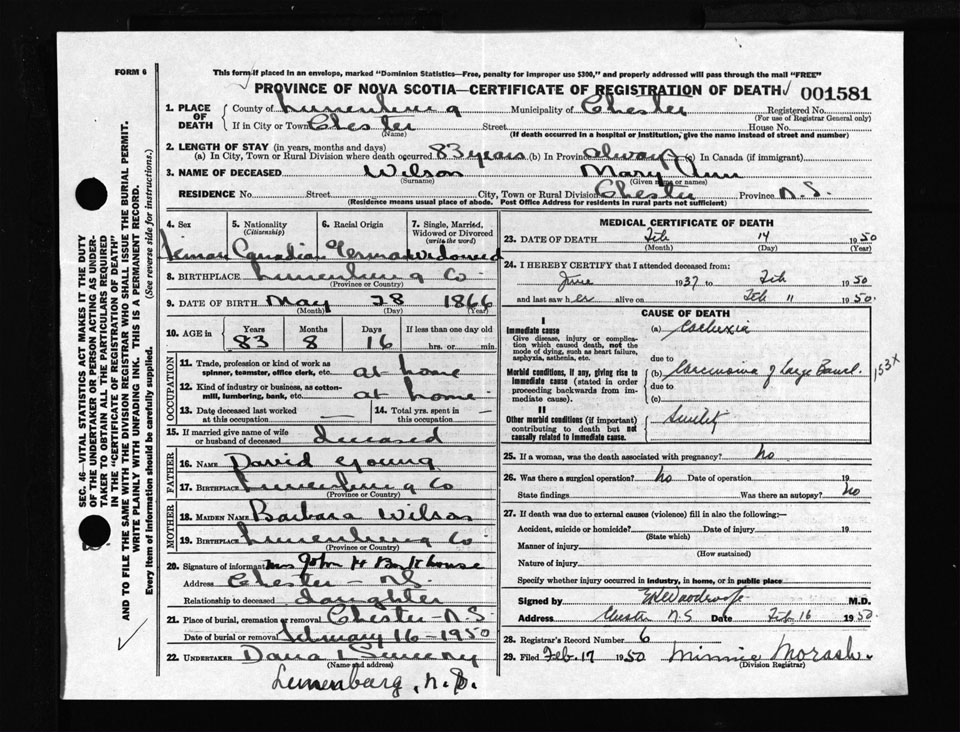 FORM 6
This form if placed in an envelope, marked "Dominion Statistics—Free, penalty for improper use $300," and properly addressed will pass through the mail "FREE"
PROVINCE OF NOVA SCOTIA—CERTIFICATE OF REGISTRATION OF DEATH 001581
1. PLACE OF DEATH County of Lunenburg Municipality of Chester Registered No.
(For use of Registrar General only)
If in City or Town Chester Street House No.
(Name) (If death occurred in a hospital or institution, give the name instead of street and number)
2. LENGTH OF STAY (in years, months and days)
(a) In City, Town or Rural Division where death occurred 83 years (b) In Province always (c) In Canada (if immigrant)
3. NAME OF DECEASED Wilson Mary Ann
(Surname) (Given name or names)
RESIDENCE No. Street City, Town or Rural Division Chester Province N.S.
(Residence means usual place of abode. Post Office Address for residents in rural parts not sufficient)
4. Sex 5. Nationality (Citizenship) 6. Racial Origin 7. Single, Married, Widowed or Divorced (write the word)
Canadian German Widowed
8. BIRTHPLACE Lunenburg Co
(Province or Country)
9. DATE OF BIRTH May 28 1866
(Month) (Day) (Year)
10. AGE in Years Months Days If less than one day old
83 8 16 hrs. or min.
OCCUPATION
11. Trade, profession or kind of work as spinner, teamster, office clerk, etc. at home
12. Kind of industry or business, as cotton-mill, lumbering, bank, etc. at home
13. Date deceased last worked at this occupation — 14. Total yrs. spent in this occupation —
15. If married give name of wife or husband of deceased deceased
FATHER
16. NAME David Young
17. BIRTHPLACE Lunenburg Co
(Province or Country)
MOTHER
18. MAIDEN NAME Barbara Wilson
19. BIRTHPLACE Lunenburg Co
(Province or Country)
20. Signature of informant Mrs John H
Address Chester - N.S.
Relationship to deceased daughter
21. Place of burial, cremation or removal Chester - N.S
Date of burial or removal February 16 - 1950
22. UNDERTAKER Dana Sweeny
(Name and address)
Lunenburg, N.S.
MEDICAL CERTIFICATE OF DEATH
23. DATE OF DEATH Feb 14 1950
(Month) (Day)
24. I HEREBY CERTIFY that I attended deceased from:
June 1937 to Feb 1950
and last saw her alive on Feb 11 1950.
CAUSE OF DEATH
I
Immediate cause (a) Cachexia
Give disease, injury or complication which caused death, not the mode of dying, such as heart failure, asphyxia, asthenia, etc.
due to
Morbid conditions, if any, giving rise to immediate cause (stated in order proceeding backwards from immediate cause).
(b) Carcinoma of large Bowel. 153X
due to
(c)
II
Other morbid conditions (if important) contributing to death but not causally related to immediate cause.
Senility
25. If a woman, was the death associated with pregnancy? no
26. Was there a surgical operation? no Date of operation 19
State findings Was there an autopsy? no
27. If death was due to external causes (violence) fill in also the following:—
Accident, suicide or homicide? Date of injury 19
(State which)
Manner of injury
(How sustained)
Nature of injury
Specify whether injury occurred in industry, in home, or in public place
Signed by M.D.
Address Chester N.S Date Feb 16 1950
28. Registrar's Record Number 6
29. Filed Feb. 17 1950 Minnie Morash.
(Division Registrar)
SEC. 46—VITAL STATISTICS ACT MAKES IT THE DUTY
OF THE UNDERTAKER OR PERSON ACTING AS UNDERTAKER
TO OBTAIN ALL THE PARTICULARS REQUIRED
IN THE "CERTIFICATE OF REGISTRATION OF DEATH"
AND TO FILE THE SAME WITH THE DIVISION REGISTRAR WHO SHALL ISSUE THE BURIAL PERMIT.
WRITE PLAINLY WITH UNFADING INK. THIS IS A PERMANENT RECORD.
Every item of information should be carefully supplied. (See reverse side for instructions.)